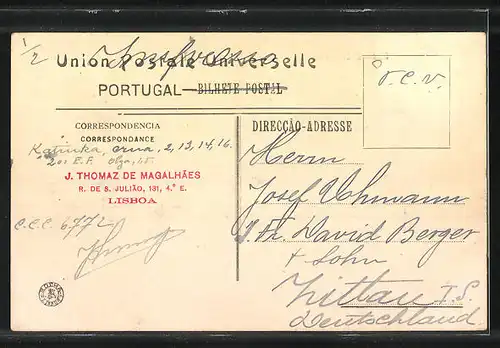 1/2
Union Postale Universelle
PORTUGAL — BILHETE POSTAL
T.C.V.
CORRESPONDENCIA
CORRESPONDANCE
DIRECÇÃO-ADRESSE
Katinka, 2, 13, 14, 16.
E.F. Olga, 15
J. THOMAZ DE MAGALHÃES
R. DE S. JULIÃO, 131, 4.º E.
LISBOA
C.C.C. 6772
Herrn
Josef
David Berger
+ Sohn
Zittau i. S.
Deutschland